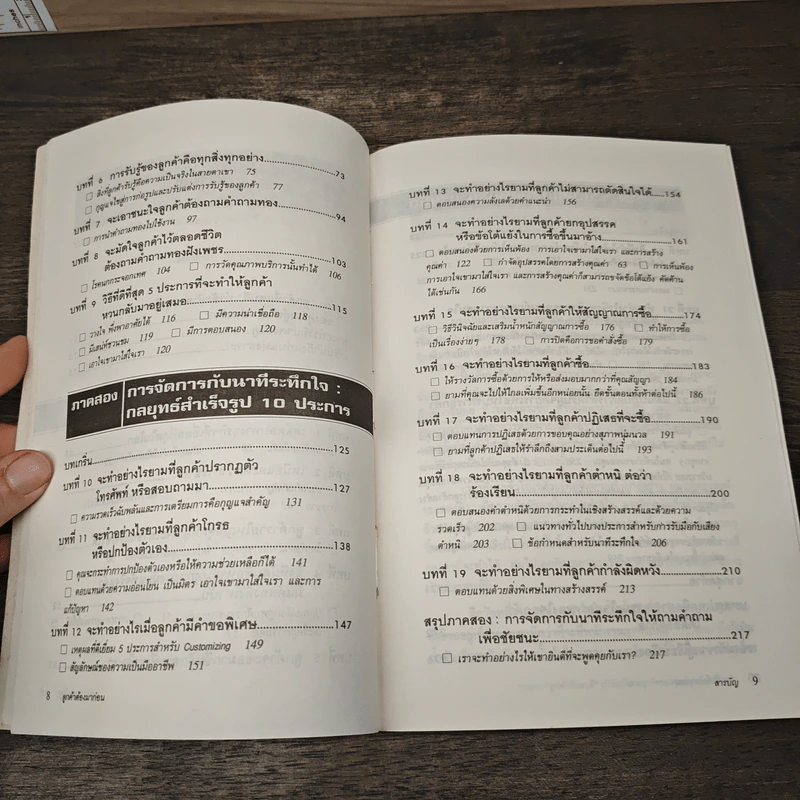 บทที่ 6 การรับรู้ของลูกค้าคือทุกสิ่งทุกอย่าง..............................73
☐ สิ่งที่ลูกค้ารับรู้คือความเป็นจริงในสายตาเขา 75
☐ กุญแจไขสู่การก่อรูปและปรับแต่งการรับรู้ของลูกค้า 77
บทที่ 7 จะเอาชนะใจลูกค้าต้องถามคำถามทอง..............................94
☐ การนำคำถามทองไปใช้งาน 97
บทที่ 8 จะมัดใจลูกค้าไว้ตลอดชีวิต
ต้องถามคำถามทองฝังเพชร..............................103
☐ โรคนกกระจอกเทศ 104 ☐ การวัดคุณภาพบริการนั้นทำได้ 106
บทที่ 9 วิธีที่ดีที่สุด 5 ประการที่จะทำให้ลูกค้า
หวนกลับมาอยู่เสมอ..............................115
☐ วางใจ พึ่งพาอาศัยได้ 116 ☐ มีความน่าเชื่อถือ 118
☐ มีเสน่ห์ชวนชม 119 ☐ มีการตอบสนอง 120
☐ เอาใจเขามาใส่ใจเรา 120
ภาคสอง การจัดการกับนาทีระทึกใจ :
กลยุทธ์สำเร็จรูป 10 ประการ
บทเกริ่น..............................125
บทที่ 10 จะทำอย่างไรยามที่ลูกค้าปรากฏตัว
โทรศัพท์ หรือสอบถามมา..............................127
☐ ความรวดเร็วฉับพลันและการเตรียมการคือกุญแจสำคัญ 131
บทที่ 11 จะทำอย่างไรยามที่ลูกค้าโกรธ
หรือปกป้องตัวเอง..............................138
☐ คุณจะกระทำการปกป้องตัวเองหรือให้ความช่วยเหลือก็ได้ 141
☐ ตอบแทนด้วยความอ่อนโยน เป็นมิตร เอาใจเขามาใส่ใจเรา และการ
แก้ปัญหา 142
บทที่ 12 จะทำอย่างไรเมื่อลูกค้ามีคำขอพิเศษ..............................147
☐ เหตุผลที่ดีเยี่ยม 5 ประการสำหรับ Customizing 149
☐ สัญลักษณ์ของความเป็นมืออาชีพ 151
8 ลูกค้าต้องมาก่อน
บทที่ 13 จะทำอย่างไรยามที่ลูกค้าไม่สามารถตัดสินใจได้......154
☐ ตอบสนองความลังเลด้วยคำแนะนำ 156
บทที่ 14 จะทำอย่างไรยามที่ลูกค้ายกอุปสรรค
หรือข้อโต้แย้งในการซื้อขึ้นมาอ้าง..............................161
☐ ตอบสนองด้วยการเห็นพ้อง การเอาใจเขามาใส่ใจเรา และการสร้าง
คุณค่า 122 ☐ กำจัดอุปสรรคโดยการสร้างคุณค่า 63 ☐ การเห็นพ้อง
การเอาใจเขามาใส่ใจเรา และการสร้างคุณค่าก็สามารถขจัดข้อโต้แย้ง คัดค้าน
ได้เช่นกัน 166
บทที่ 15 จะทำอย่างไรยามที่ลูกค้าให้สัญญาณการซื้อ..............................174
☐ วิธีวินิจฉัยและเสริมน้ำหนักสัญญาณการซื้อ 176 ☐ ทำให้การซื้อ
เป็นเรื่องง่ายๆ 178 ☐ การปิดคือการขอคำสั่งซื้อ 179
บทที่ 16 จะทำอย่างไรยามที่ลูกค้าซื้อ..............................183
☐ ให้รางวัลการซื้อด้วยการให้หรือส่งมอบมากกว่าที่คุณสัญญา 184
☐ ยามที่คุณจะไปให้ไกลเพิ่มขึ้นอีกหน่อยนั้น ยึดขั้นตอนทั้งห้าต่อไปนี้ 186
บทที่ 17 จะทำอย่างไรยามที่ลูกค้าปฏิเสธที่จะซื้อ..............................190
☐ ตอบแทนการปฏิเสธด้วยการขอบคุณอย่างสุภาพนุ่มนวล 191
☐ ยามที่ลูกค้าปฏิเสธให้รำลึกถึงสามประเด็นต่อไปนี้ 193
บทที่ 18 จะทำอย่างไรยามที่ลูกค้าตำหนิ ต่อว่า
ร้องเรียน..............................200
☐ ตอบสนองคำตำหนิด้วยการกระทำในเชิงสร้างสรรค์และด้วยความ
รวดเร็ว 202 ☐ แนวทางทั่วไปบางประการสำหรับการรับมือกับเสียง
ตำหนิ 203 ☐ ข้อกำหนดสำหรับนาทีระทึกใจ 206
บทที่ 19 จะทำอย่างไรยามที่ลูกค้ากำลังผิดหวัง..............................210
☐ ตอบแทนด้วยสิ่งพิเศษในทางสร้างสรรค์ 213
สรุปภาคสอง : การจัดการกับนาทีระทึกใจให้ถามคำถาม
เพื่อชัยชนะ..............................217
☐ เราจะทำอย่างไรให้เขายินดีที่จะพูดคุยกับเรา? 217
สารบัญ 9